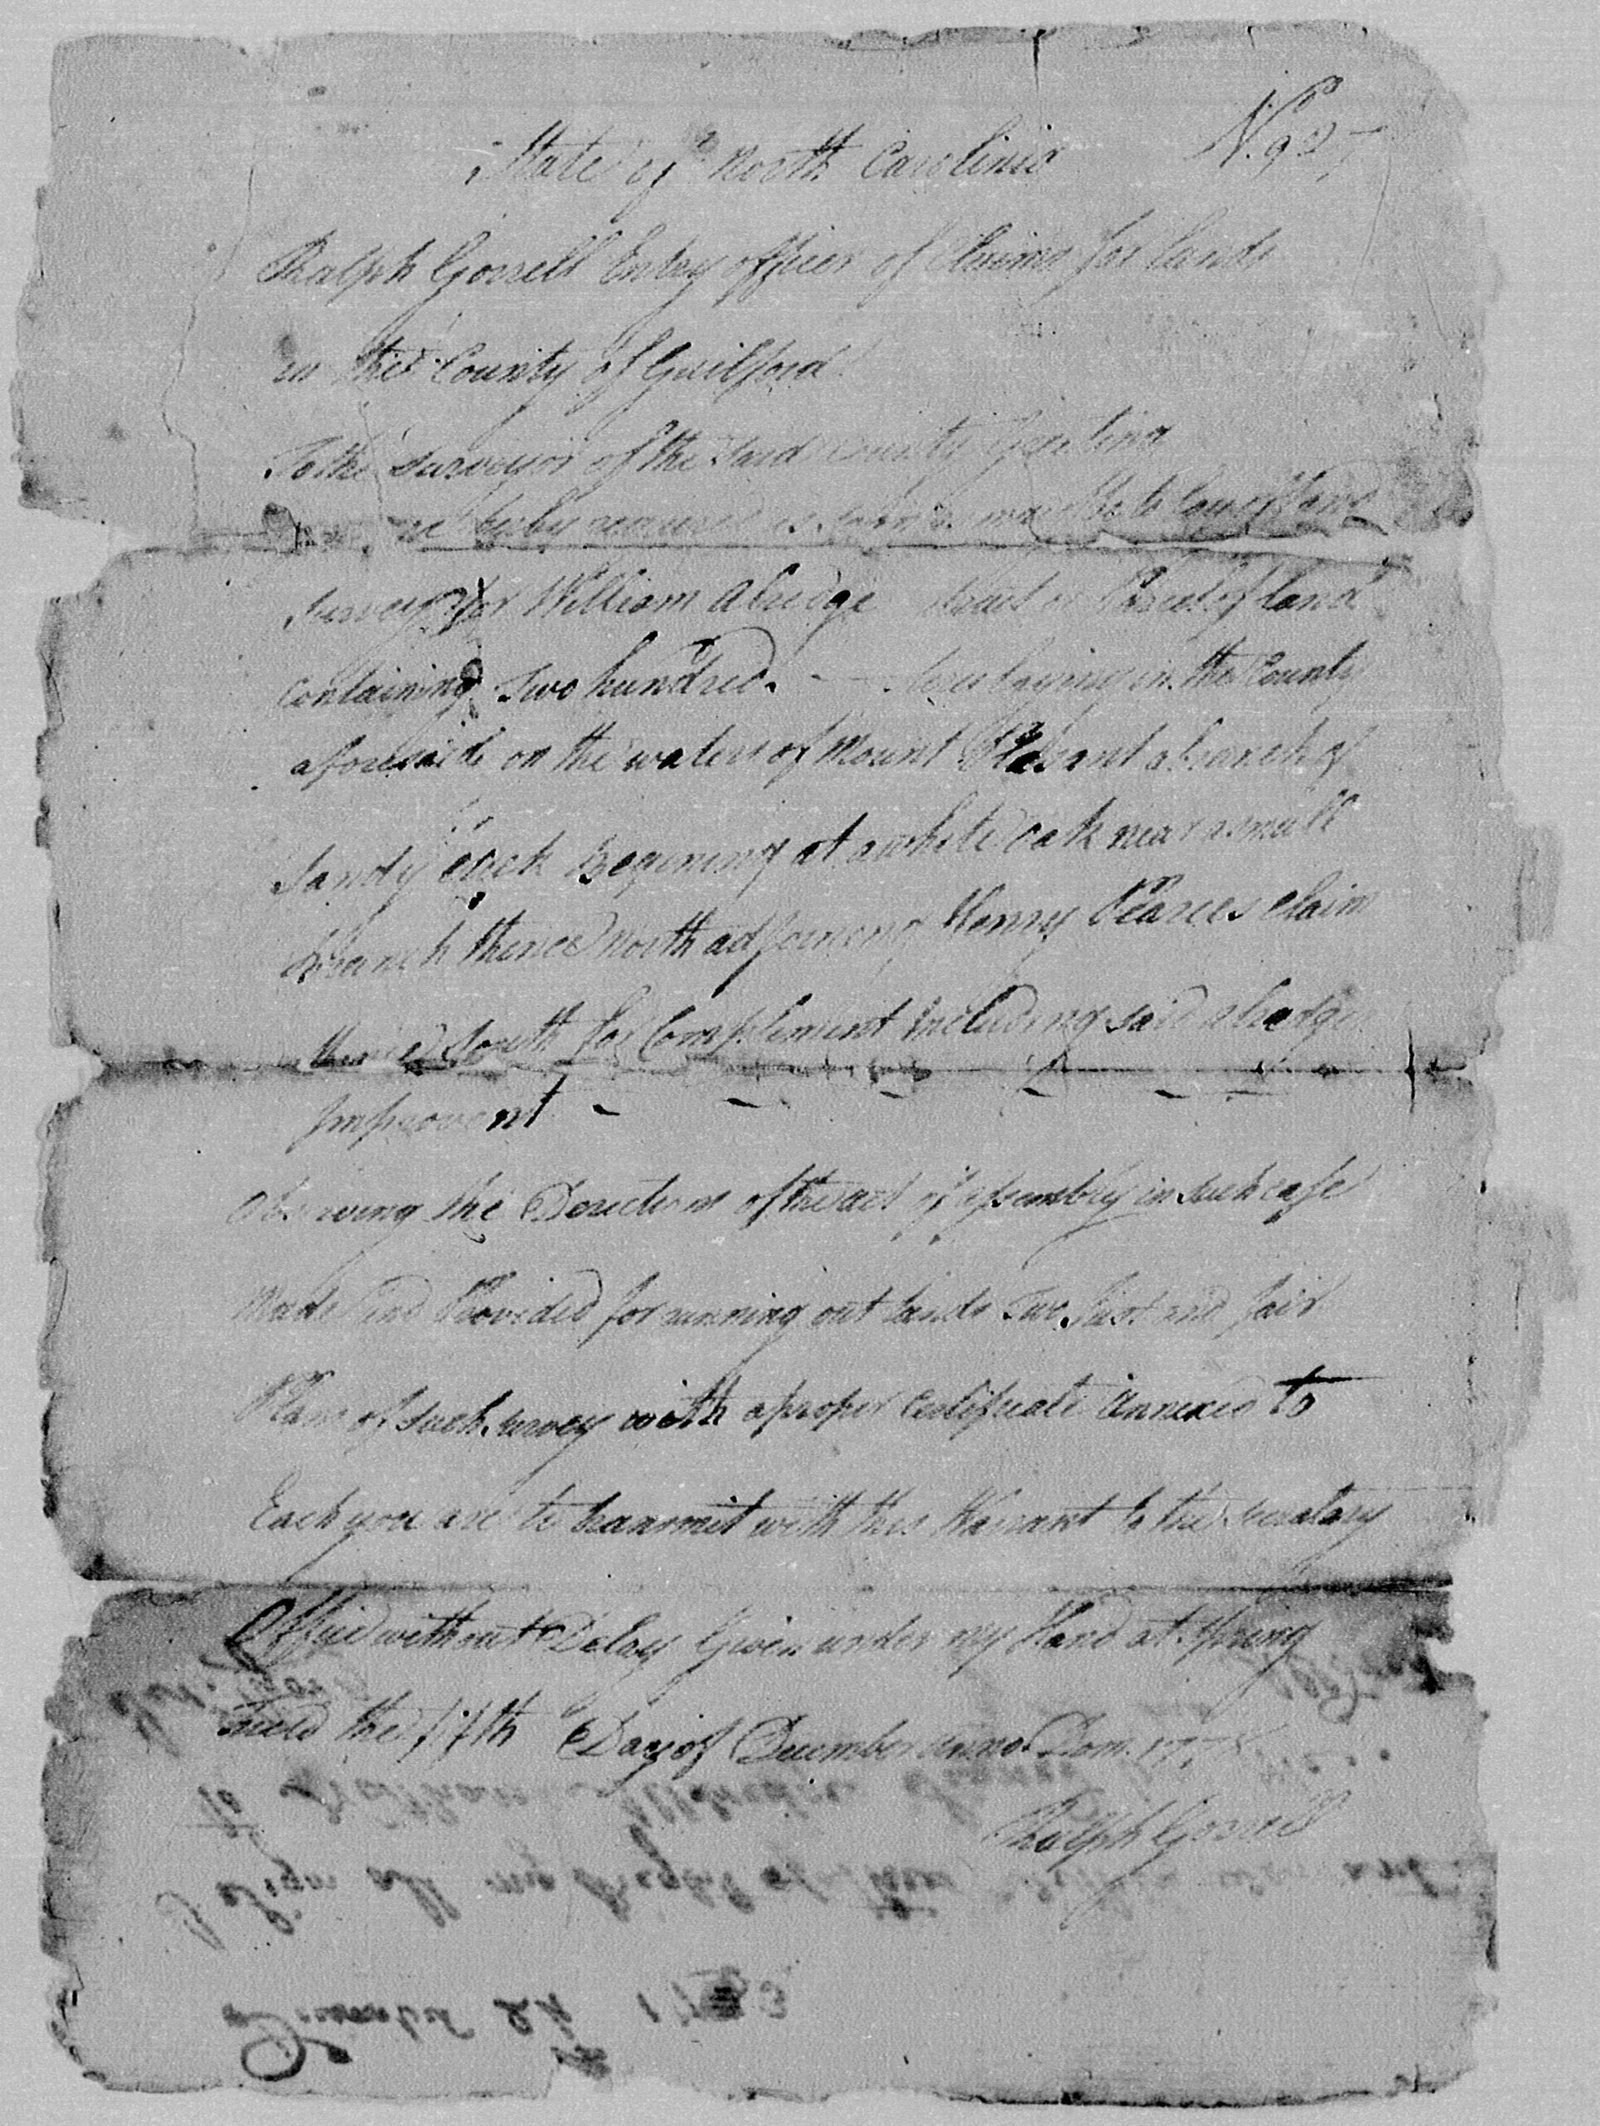 State of North Carolinia
Ralph Gorrell Entry officer of Claims for lands
in the County of Guilford
To the Surveyor of the said County Greeting
hereby required as soon as may be to lay off and
survey for William Alredge tract or Parcel of land
containing Two hundred. Acres laying in the County
aforesaid on the waters of Mount Plesant a branch of
Sandy Crick Begining at a white oak near a small
Branch thence North adjoining Henry Pearces claim
thence South for Compliment Including said
Improvent
Observing the Direction of the act of assembly in such case
Made and Provided for running out lands Two Just and fair
Plans of such survey with a proper certificate annexed to
Each you are to transmit with this Warrant to the secratary
Office without Delay Given under my Hand at Spring
field the fifth Day of December anno Dom. 177
Ralph Gorrell
I Sign all my Right of the within warrant
to
December 24 17